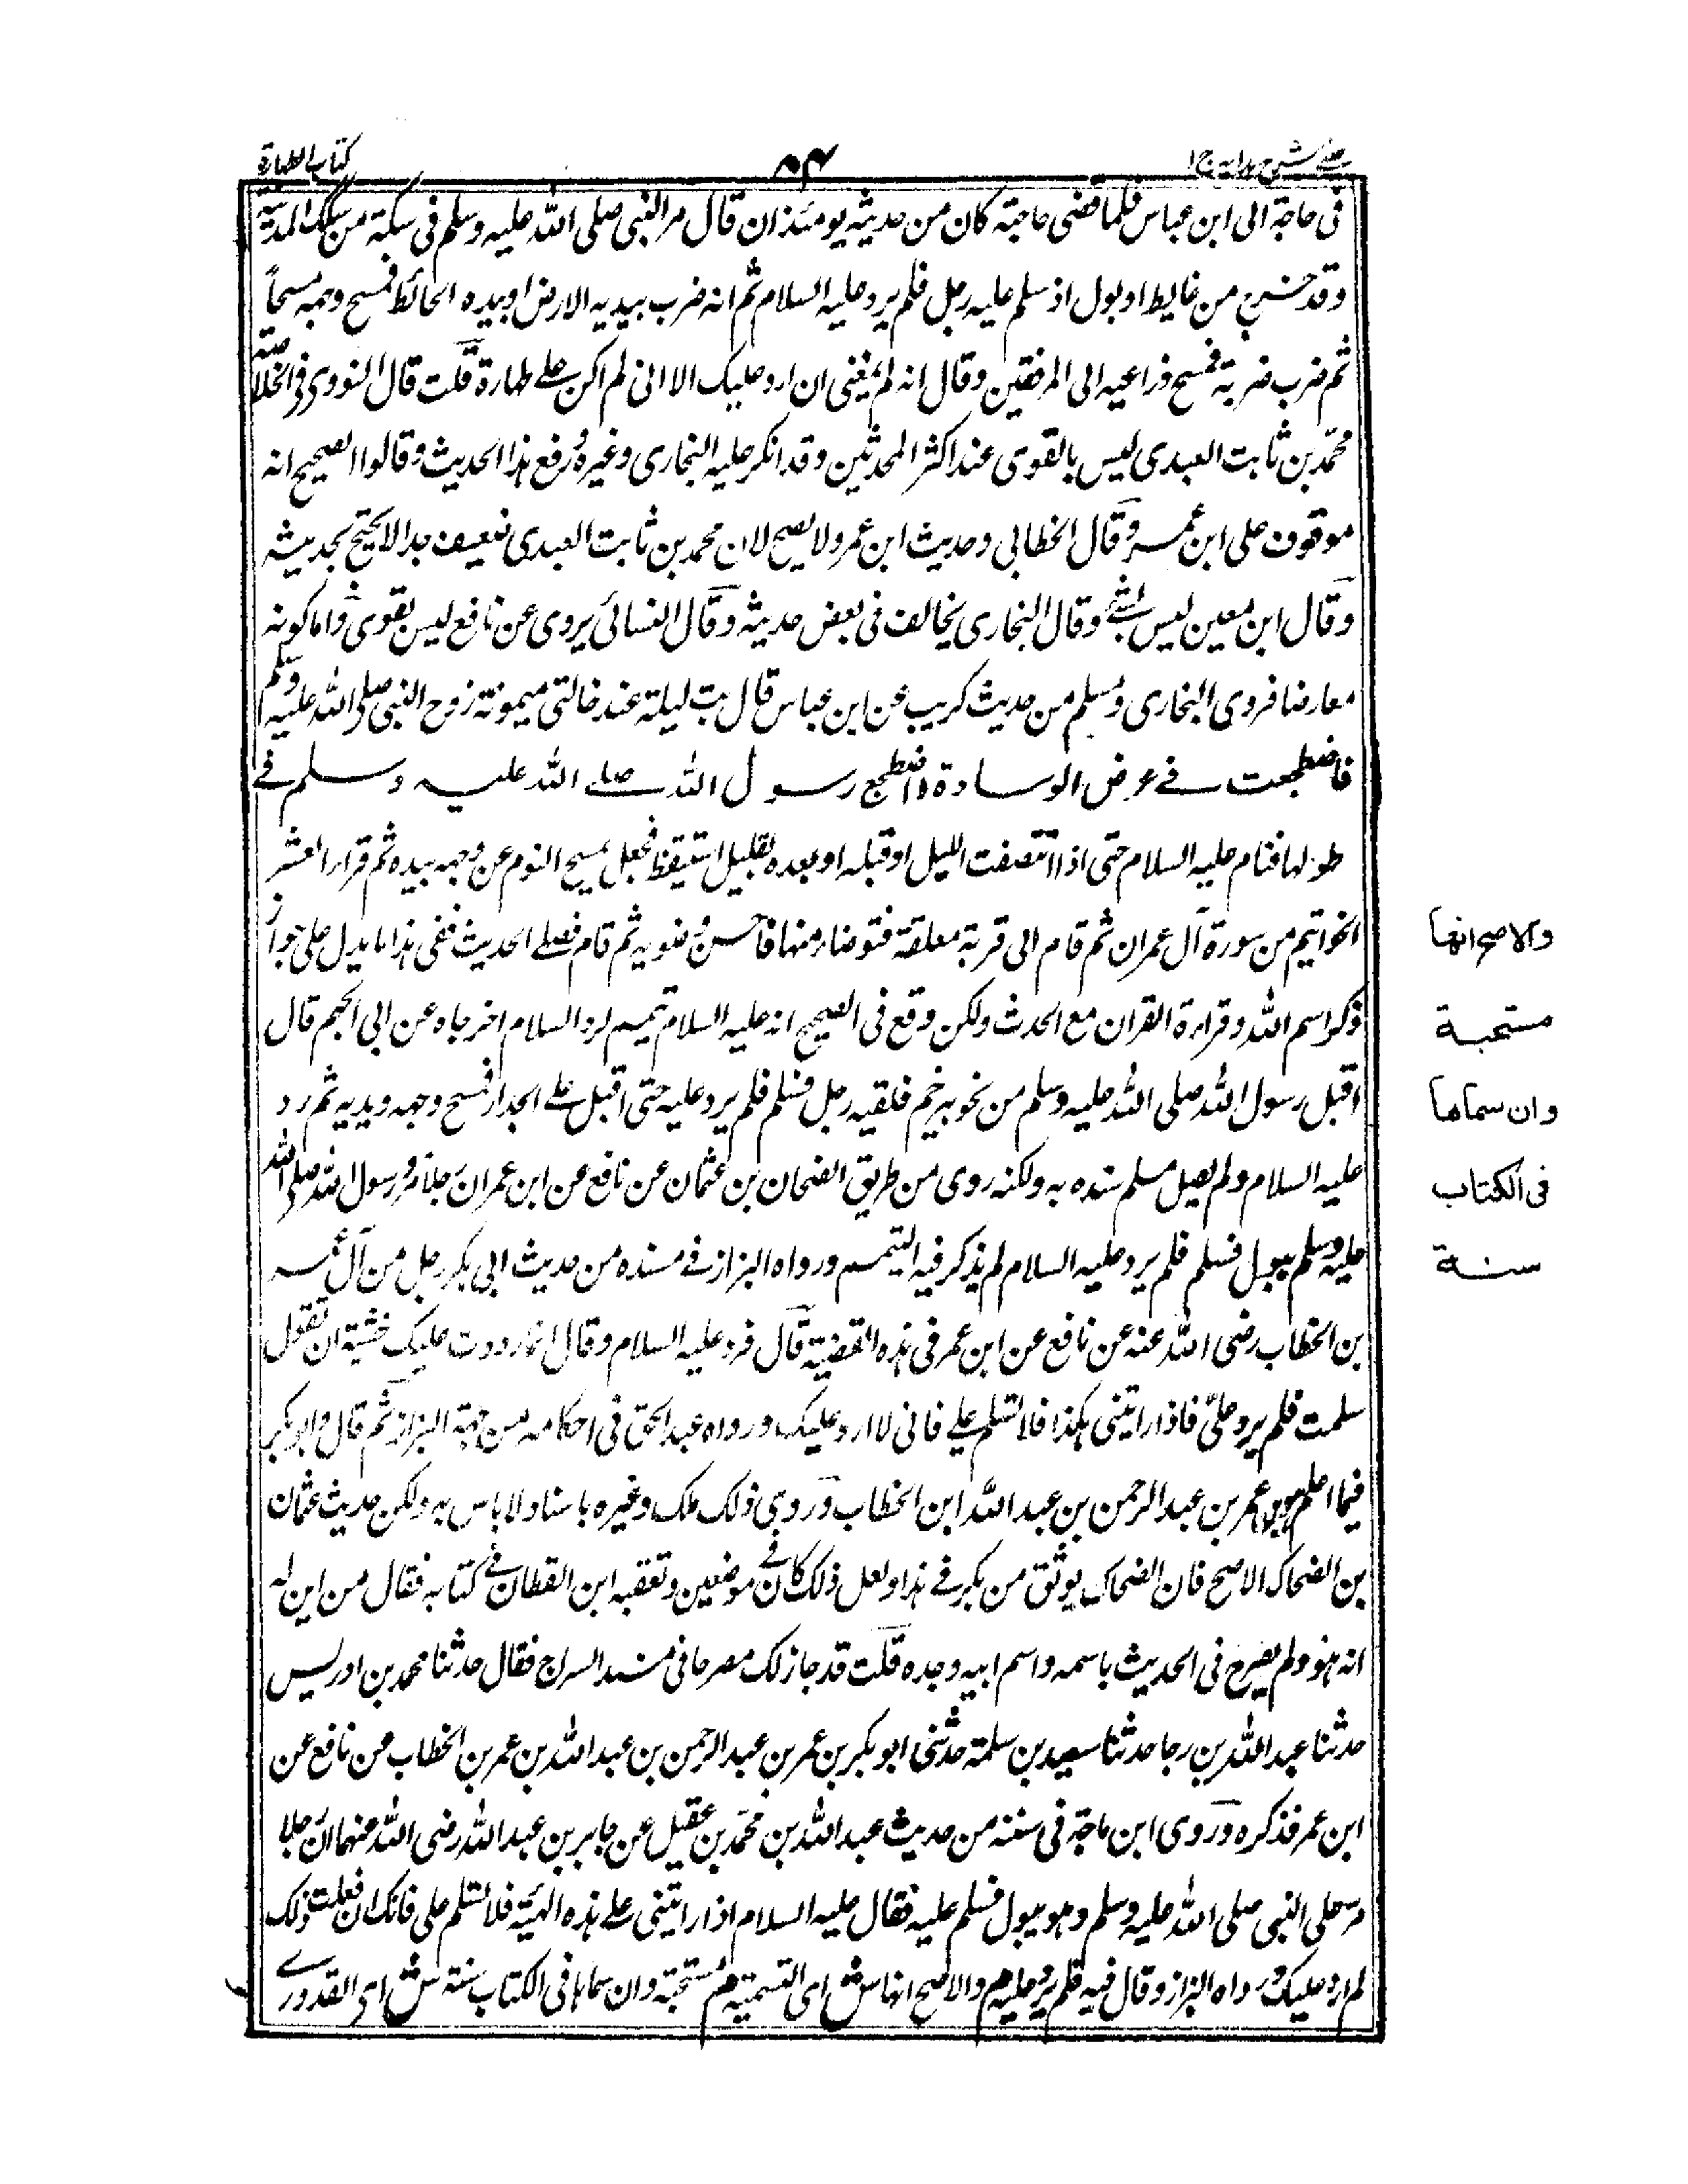 عینے شرح ہدایہ ج ١
٥٤
کتاب الطہارة
فی حاجة الی ابن عباس فلما قضی حاجتہ کان من حدیثہ یومئذ ان قال مر النبی صلی اللہ علیہ وسلم فی سکة من سکک المدینة
وقد خرج من غایط او بول اذ سلم علیہ رجل فلم یرد علیہ السلام ثم انہ ضرب بیدیہ الارض او بیدہ الحائط فمسح وجہہ مسحاً
ثم ضرب ضربة فمسح ذراعیہ الی المرفقین وقال انہ لم یمنعنی ان ارد علیک الا انی لم اکن علے طہارة قلت قال النووی فی الخلاصة
محمد بن ثابت العبدی لیس بالقوی عند اکثر المحدثین وقد انکر علیہ البخاری وغیرہ رفع ہذا الحدیث وقالوا الصحیح انہ
موقوف علی ابن عمر وقال الخطابی وحدیث ابن عمر ولا یصح لان محمد بن ثابت العبدی ضعیف جدا لا یحتج بحدیثہ
وقال ابن معین لیس بشئے وقال البخاری یخالف فی بعض حدیثہ وقال النسائی یروی عن نافع لیس بقوی واما کونہ
معارضا فروی البخاری ومسلم من حدیث کریب عن ابن عباس قال بت لیلة عند خالتی میمونة زوج النبی صلی اللہ علیہ وسلم
فاضطجعت فے عرض الوسادة واضطجع رسول اللہ صلے اللہ علیہ وسلم فے
طولہا فنام علیہ السلام حتی اذا انتصفت اللیل او قبلہ او بعدہ بقلیل استیقظ فجعل یمسح النوم عن وجہہ بیدہ ثم قرا العشر
الخواتیم من سورة آل عمران ثم قام الی قربة معلقة فتوضا منہا فاحسن وضویہ ثم قام فصلے الحدیث ففی ہذا ما یدل علی جواز
ذکر اسم اللہ وقراءة القران مع الحدث ولکن وقع فی الصحیح انہ علیہ السلام تیمم لرد السلام اخرجاہ عن ابی الجہم قال
اقبل رسول اللہ صلی اللہ علیہ وسلم من نحو بیر خم فلقیہ رجل فسلم فلم یرد علیہ حتی اقبل علے الجدار فمسح وجہہ ویدیہ ثم رد
علیہ السلام ولم یصل مسلم سندہ بہ ولکنہ روی من طریق الضحان بن عثمان عن نافع عن ابن عمر ان رجلا مر ورسول اللہ صلی اللہ
علیہ وسلم یبول فسلم فلم یرد علیہ السلام لم یذکر فیہ التیمم ورواہ البزاز فے مسندہ من حدیث ابی بکر رجل من آل عمر
بن الخطاب رضی اللہ عنہ عن نافع عن ابن عمر فی ہذہ القضیة قال فرد علیہ السلام وقال انما رددت علیک خشیة ان تقول
سلمت فلم یرد علیّ فاذا رایتنی ہکذا فلا تسلم علے فانی لا ارد علیک ورواہ عبد الحق فی احکامہ من جہة البزاز ثم قال وابو بکر
فیما اعلم ہو ابن عمر بن عبد الرحمن بن عبد اللہ ابن الخطاب وروی ذلک ملک وغیرہ باسناد لا باس بہ ولکن حدیث عثمان
بن الضحاک الاصح فان الضحاک یوثق من بکر فے ہذا ولعل ذلک کان فے موضعین وتعقبہ ابن القطان فے کتابہ فقال من این لہ
انہ ہو ولم یصرح فی الحدیث باسمہ واسم ابیہ وجدہ قلت قد جا زلک مصرحا فی مسند السراج فقال حدثنا محمد بن ادریس
حدثنا عبد اللہ بن رجا حدثنا سعید بن سلمة حدثنی ابو بکر بن عمر بن عبد الرحمن بن عبد اللہ بن عمر بن الخطاب عن نافع عن
ابن عمر فذکرہ وروی ابن ماجة فی سننہ من حدیث عبد اللہ بن محمد بن عقیل عن جابر بن عبد اللہ رضی اللہ عنہما ان رجلا
مر علی النبی صلی اللہ علیہ وسلم وہو یبول فسلم علیہ فقال علیہ السلام اذا رایتنی علے ہذہ الہیئة فلا تسلم علی فانک ان فعلت ذلک
لم ارد علیک ورواہ البزاز وقال فیہ فلم یرد علیہ م والاصح انہا ش ای التسمیة م مستحبة وان سماہا فی الکتاب سنة ش ای القدورے
والاصح انها
مستحبة
وان سماها
فی الکتاب
سنة